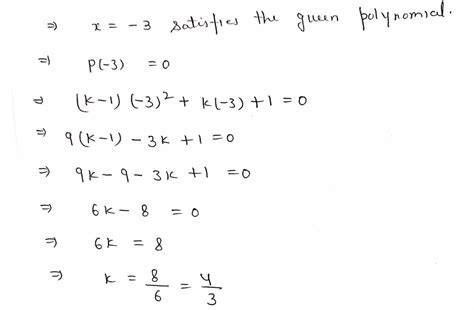 ⇒ x = -3 satisfies the given polynomial.
⇒ P(-3) = 0
⇒ (k-1) (-3)² + k(-3) + 1 = 0
⇒ 9(k-1) - 3k + 1 = 0
⇒ 9k - 9 - 3k + 1 = 0
⇒ 6k - 8 = 0
⇒ 6k = 8
⇒ k = 8/6 = 4/3